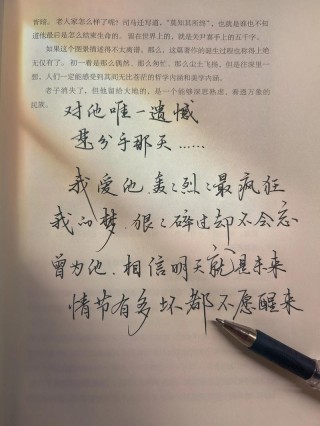 曾瞎。老人家怎么样了呢？司马迁写道，“莫知其所终”，也就是谁也不知
道他最后是怎么结束生命的。留在世界上的，就是关尹喜手上的五千字。
如果这个图景描述得不太离谱，那么，这篇著作的诞生过程也称得上绝
无仅有了。初一看是那么偶然、那么匆忙、那么尘土飞扬，但是往深里一
想，人们一定能感受到其间无比苍茫的哲学内涵和美学内涵。
老子消失了，但他留给大地的，是一个能够深思熟虑、看透万象的
民族。
对他唯一遗憾
是分手那天……
我爱他，轰轰烈烈最疯狂
我的梦，狠狠碎过却不会忘
曾为他，相信明天就是未来
情节有多坏都不愿醒来